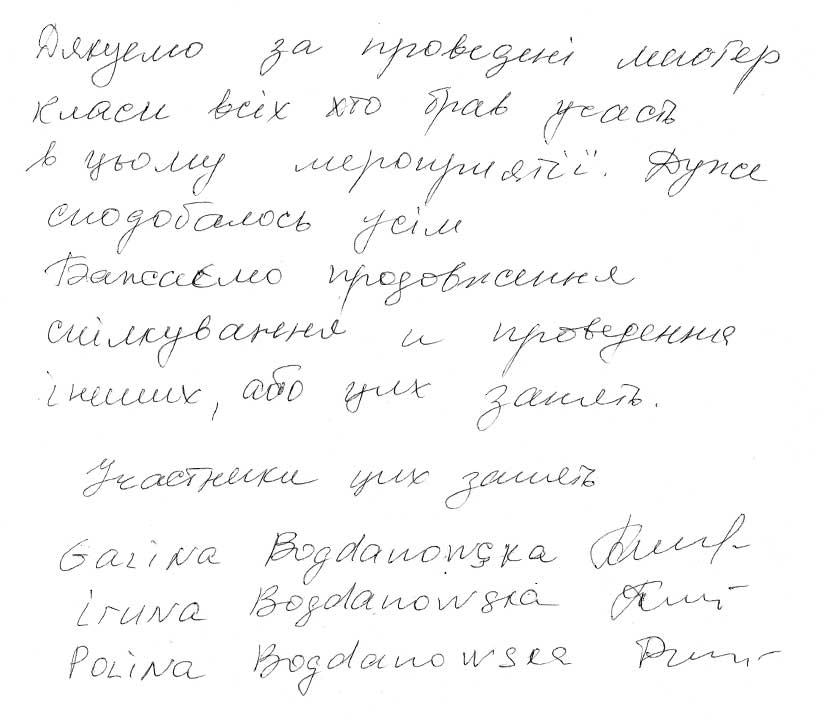 Дякуємо за проведені мастер
класи всіх хто брав участь
в цьому мероприятії. Дуже
сподобалось усім
Бажаємо продовження
спілкування и проведення
інших, або цих занять.
Участники цих занять
Galina Bogdanowska
Iryna Bogdanowska
Polina Bogdanowska